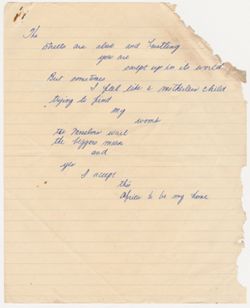 The
streets are alive and hustling
you are
swept up in its world
But sometimes
I feel like a motherless child
trying to find
my
womb
the
wail
the beggars moan
and
yes
I accept
this
Africa to be my home